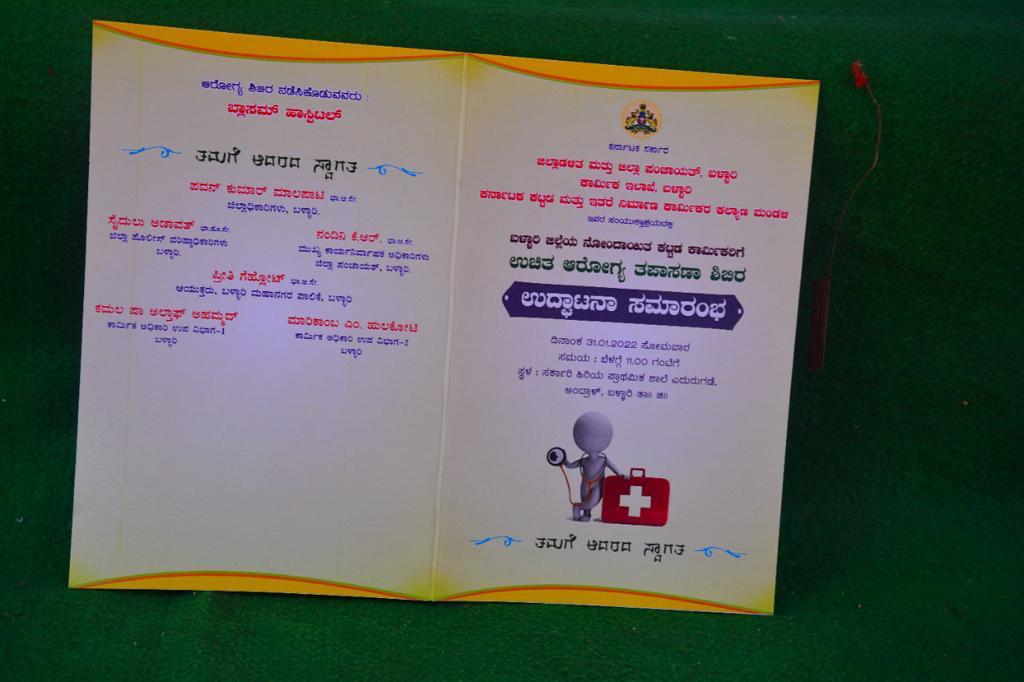 ಆರೋಗ್ಯ ಶಿಬಿರ ನಡೆಸಿಕೊಡುವವರು :
ಬ್ಲಾಸಮ್ ಹಾಸ್ಪಿಟಲ್
ತಮಗೆ ಆದರದ ಸ್ವಾಗತ
ಪವನ್ ಕುಮಾರ್ ಮಾಲಪಾಟಿ ಭಾ.ಆ.ಸೇ.
ಜಿಲ್ಲಾಧಿಕಾರಿಗಳು, ಬಳ್ಳಾರಿ.
ಸೈದುಲು ಅಡಾವತ್ ಭಾ.ಪೊ.ಸೇ.
ಜಿಲ್ಲಾ ಪೊಲೀಸ್ ವರಿಷ್ಠಾಧಿಕಾರಿಗಳು
ಬಳ್ಳಾರಿ.
ನಂದಿನಿ ಕೆ.ಆರ್. ಭಾ.ಆ.ಸೇ.
ಮುಖ್ಯ ಕಾರ್ಯನಿರ್ವಾಹಕ ಅಧಿಕಾರಿಗಳು
ಜಿಲ್ಲಾ ಪಂಚಾಯತ್, ಬಳ್ಳಾರಿ.
ಪ್ರೀತಿ ಗೆಹ್ಲೋಟ್ ಭಾ.ಆ.ಸೇ.
ಆಯುಕ್ತರು, ಬಳ್ಳಾರಿ ಮಹಾನಗರ ಪಾಲಿಕೆ, ಬಳ್ಳಾರಿ
ಕಮಲ ಪಾ ಅಲ್ತಾಫ್ ಅಹಮ್ಮದ್
ಕಾರ್ಮಿಕ ಅಧಿಕಾರಿ ಉಪ ವಿಭಾಗ-1
ಬಳ್ಳಾರಿ
ಮಾರಿಕಾಂಬ ಎಂ. ಹುಲಕೋಟಿ
ಕಾರ್ಮಿಕ ಅಧಿಕಾರಿ ಉಪ ವಿಭಾಗ-2
ಬಳ್ಳಾರಿ
ಕರ್ನಾಟಕ ಸರ್ಕಾರ
ಜಿಲ್ಲಾಡಳಿತ ಮತ್ತು ಜಿಲ್ಲಾ ಪಂಚಾಯತ್, ಬಳ್ಳಾರಿ
ಕಾರ್ಮಿಕ ಇಲಾಖೆ, ಬಳ್ಳಾರಿ
ಕರ್ನಾಟಕ ಕಟ್ಟಡ ಮತ್ತು ಇತರೆ ನಿರ್ಮಾಣ ಕಾರ್ಮಿಕರ ಕಲ್ಯಾಣ ಮಂಡಳಿ
ಇವರ ಸಂಯುಕ್ತಾಶ್ರಯದಲ್ಲಿ
ಬಳ್ಳಾರಿ ಜಿಲ್ಲೆಯ ನೋಂದಾಯಿತ ಕಟ್ಟಡ ಕಾರ್ಮಿಕರಿಗೆ
ಉಚಿತ ಆರೋಗ್ಯ ತಪಾಸಣಾ ಶಿಬಿರ
ಉದ್ಘಾಟನಾ ಸಮಾರಂಭ
ದಿನಾಂಕ 31.01.2022 ಸೋಮವಾರ
ಸಮಯ : ಬೆಳಗ್ಗೆ 11.00 ಗಂಟೆಗೆ
ಸ್ಥಳ : ಸರ್ಕಾರಿ ಹಿರಿಯ ಪ್ರಾಥಮಿಕ ಶಾಲೆ ಎದುರುಗಡೆ.
ಅಂದ್ರಾಳ್, ಬಳ್ಳಾರಿ ತಾ॥ ಜಿ॥
ತಮಗೆ ಆದರದ ಸ್ವಾಗತ